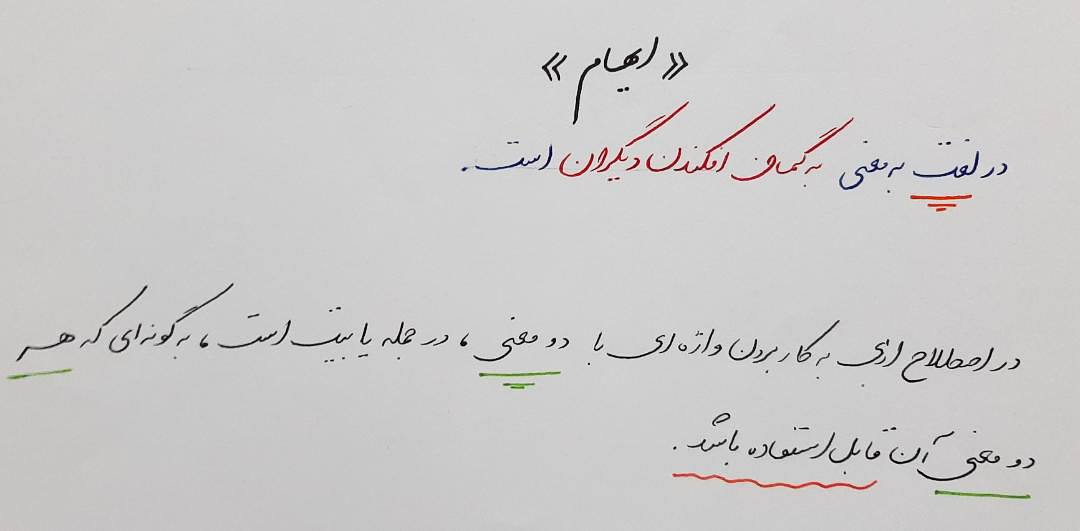 « ایهام »
در لغت به معنی به گمان افکندن دیگران است.
در اصطلاح ادبی به کار بردن واژه ای با دو معنی ، در جمله یا بیت است ، به گونه ای که هر
دو معنی آن قابل استفاده باشد.